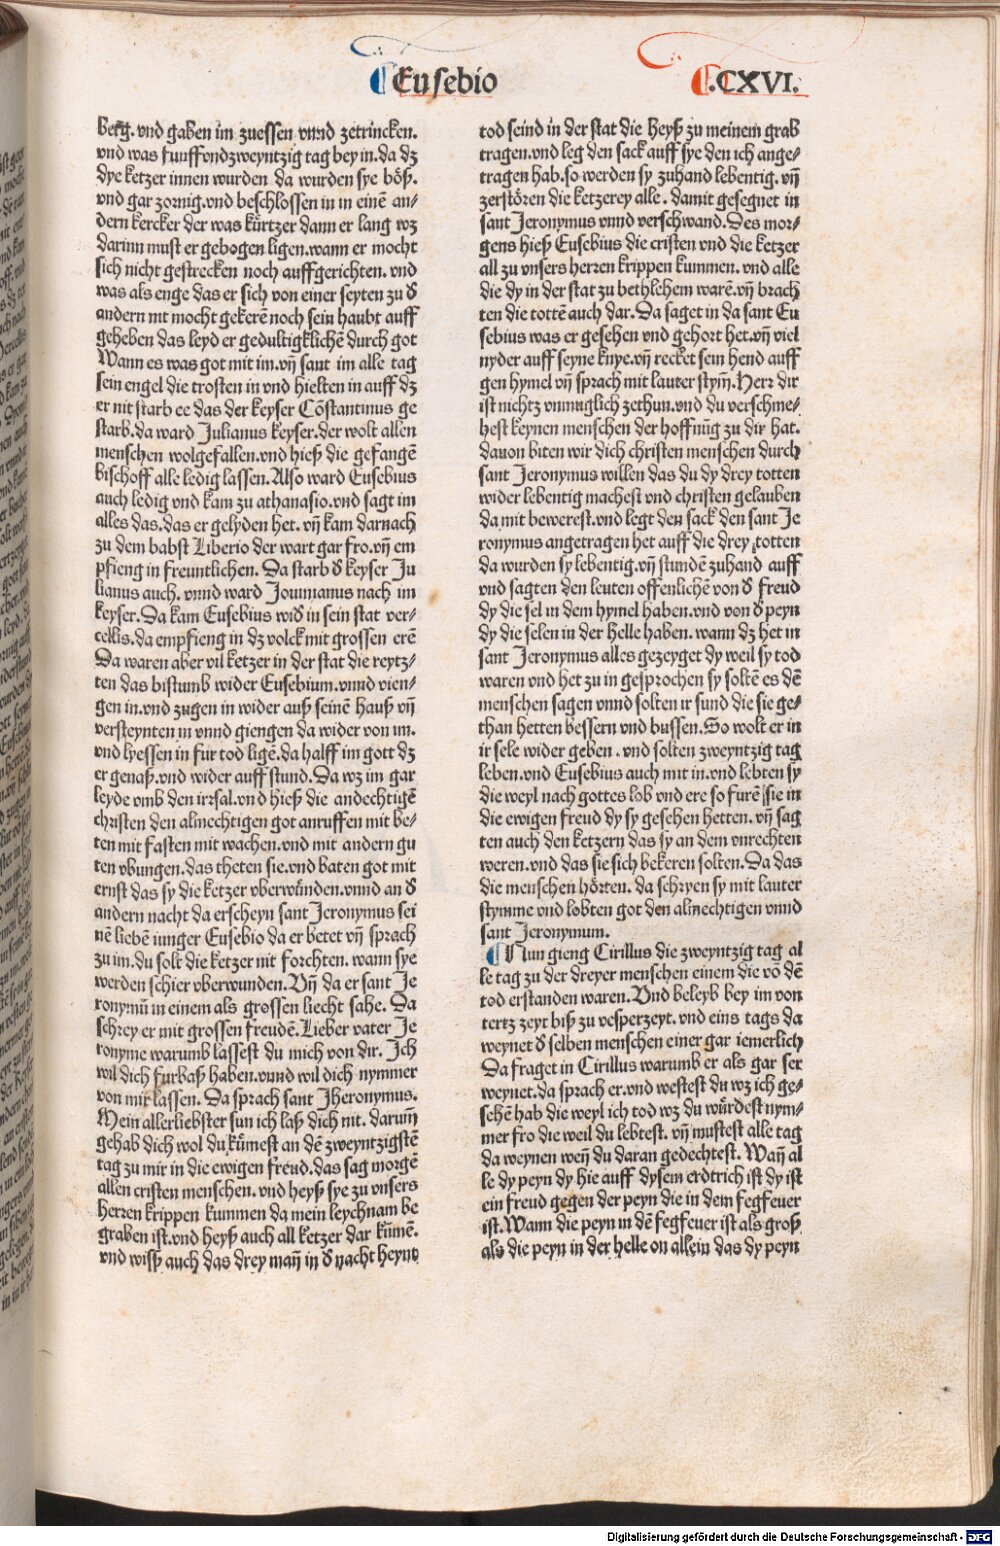 Eusebio .CXVI.
berg. vnd gaben im zuessen vnnd zetrincken.
vnd was funffvndzweyntzig tag bey in. da dz
dye ketzer innen wurden da wurden sye böß.
vnd gar zornig. vnd beschlossen in in einē an-
dern kercker der was kürtzer dann er lang wz
darinn must er gebogen ligen. wann er mocht
sich nicht gestrecken noch auffgerichten. vnd
was als enge das er sich von einer seyten zu d̄
andern nit mocht gekerē noch sein haubt auff
geheben das leyd er gedultigklichē durch got
Wann es was got mit im. vñ sant im alle tag
sein engel die trosten in vnd hielten in auff dz
er nit starb ee das der keyser Cōstantinus ge
starb. da ward Julianus keyser. der wolt allen
menschen wolgefallen. vnd hieß die gefangē
bischoff alle ledig lassen. Also ward Eusebius
auch ledig vnd kam zu athanasio. vnd sagt im
alles das. das er gelyden het. vñ kam darnach
zu dem babst Liberio der wart gar fro. vñ em
pfieng in freuntlichen. Da starb d̄ keyser Ju
lianus auch. vnnd ward Jouinianus nach im
keyser. Da kam Eusebius wid̄ in sein stat ver-
cellis. da empfieng in dz volck mit grossen erē
Da waren aber vil ketzer in der stat die reytz-
ten das bistumb wider Eusebium. vnnd vien-
gen in. vnd zugen in wider auß seinē hauß vñ
versteynten in vnnd giengen da wider von im.
vnd lyessen in fur tod ligē. da halff im gott dz
er genaß. vnd wider auff stund. Da wz im gar
leyde vmb den irrsal. vnd hieß die andechtigē
christen den almechtigen got anruffen mit be-
ten mit fasten mit wachen. vnd mit andern gu
ten vbungen. das theten sie. vnd baten got mit
ernst das sy die ketzer vberwūnden. vnnd an d̄
andern nacht da erscheyn sant Jeronymus sei
nē liebē iunger Eusebio da er betet vñ sprach
zu im. du solt die ketzer nit forchten. wann sye
werden schier vberwunden. Vñ da er sant Je
ronymū in einem als grossen liecht sahe. Da
schrey er mit grossen freudē. Lieber vater Je
ronyme warumb lassest du mich von dir. Ich
wil dich furbaß haben. vnnd wil dich nymmer
von mir lassen. Da sprach sant Jheronymus.
Mein allerliebster sun ich laß dich nit. darum̄
gehab dich wol du kūmest an dē zweyntzigstē
tag zu mir in die ewigen freud. das sag morgē
allen cristen menschen. vnd heyß sye zu vnsers
herren krippen kummen da mein leychnam be
graben ist. vnd heyß auch all ketzer dar kūmē.
vnd wiß auch das drey man̄ in d̄ nacht heynt
tod seind in der stat die heyß zu meinem grab
tragen. vnd leg den sack auff sye den ich ange-
tragen hab. so werden sy zuhand lebentig. vñ
zerstören die ketzerey alle. damit gesegnet in
sant Jeronymus vnnd verschwand. Des mor-
gens hieß Eusebius die cristen vnd die ketzer
all zu vnsers herren krippen kummen. vnd alle
die dy in der stat zu bethlehem warē. vñ brach
ten die tottē auch dar. Da saget in da sant Eu
sebius was er gesehen vnd gehort het. vñ viel
nyder auff seyne knye. vñ recket sein hend auff
gen hymel vñ sprach mit lauter stym̄. Herr dir
ist nichtz vnmuglich zethun. vnd du verschme-
hest keynen menschen der hoffnūg zu dir hat.
dauon biten wir dich christen menschen durch
sant Jeronymus willen das du dy drey totten
wider lebentig machest vnd christen gelauben
da mit bewerest. vnd legt den sack den sant Je
ronymus angetragen het auff die drey totten
da wurden sy lebentig. vñ stundē zuhand auff
vnd sagten den leuten offenlichē von d̄ freud
dy die sel in dem hymel haben. vnd von d̄ peyn
dy die selen in der helle haben. wann dz het in
sant Jeronymus alles gezeyget dy weil sy tod
waren vnd het zu in gesprochen sy soltē es dē
menschen sagen vnnd solten ir sund die sie ge-
than hetten bessern vnd bussen. So wolt er in
ir sele wider geben. vnd solten zweyntzig tag
leben. vnd Eusebius auch mit in. vnd lebten sy
die weyl nach gottes lob vnd ere so furē sie in
die ewigen freud dy sy gesehen hetten. vñ sag
ten auch den ketzern das sy an dem vnrechten
weren. vnd das sie sich bekeren solten. Da das
die menschen hörten. da schryen sy mit lauter
stymme vnd lobten got den almechtigen vnnd
sant Jeronymum.
Nun gieng Cirillus die zweyntzig tag al
le tag zu der dreyer menschen einem die vō dē
tod erstanden waren. Vnd beleyb bey im von
tertz zeyt biß zu vesperzeyt. vnd eins tags da
weynet d̄ selben menschen einer gar iemerlich
Da fraget in Cirillus warumb er als gar ser
weynet. da sprach er. vnd westest du wz ich ge-
schē hab die weyl ich tod wz du wūrdest nym-
mer fro die weil du lebtest. vñ mustest alle tag
da weynen wen̄ du daran gedechtest. Wan̄ al
le dy peyn dy hie auff dysem erdtrich ist dy ist
ein freud gegen der peyn die in dem fegfeuer
ist. Wann die peyn in dē fegfeuer ist als groß
als die peyn in der helle on allein das dy peyn
Digitalisierung gefördert durch die Deutsche Forschungsgemeinschaft - DFG